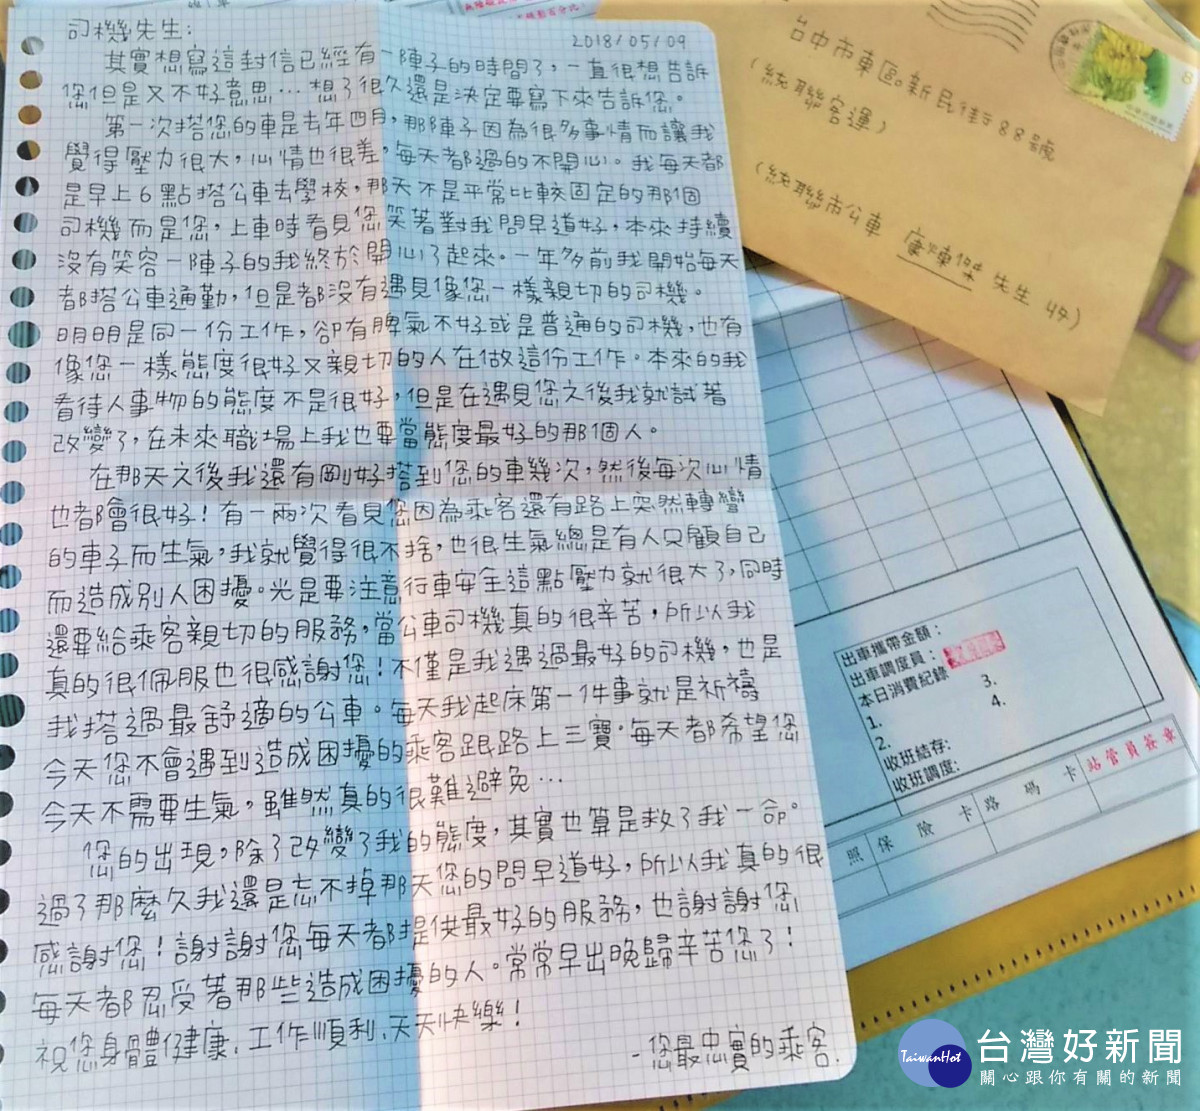 司機先生:
2018/05/09
其實想寫這封信已經有一陣子的時間了，一直很想告訴
您但是又不好意思…想了很久還是決定要寫下來告訴您。
第一次搭您的車是去年四月，那陣子因為很多事情而讓我
覺得壓力很大，心情也很差，每天都過的不開心。我每天都
是早上6點搭公車去學校，那天不是平常比較固定的那個
司機而是您，上車時看見您笑著對我問早道好，本來持續
沒有笑容一陣子的我終於開心了起來。一年多前我開始每天
都搭公車通勤，但是都沒有遇見像您一樣親切的司機。
明明是同一份工作，卻有脾氣不好或是普通的司機，也有
像您一樣態度很好又親切的人在做這份工作。本來的我
看待人事物的態度不是很好，但是在遇見您之後我就試著
改變了，在未來職場上我也要當態度最好的那個人。
在那天之後我還有剛好搭到您的車幾次，然後每次心情
也都會很好！有一兩次看見您因為乘客還有路上突然轉彎
的車子而生氣，我就覺得很不捨，也很生氣總是有人只顧自己
而造成別人困擾。光是要注意行車安全這點壓力就很大了，同時
還要給乘客親切的服務，當公車司機真的很辛苦，所以我
真的很佩服也很感謝您！不僅是我遇過最好的司機，也是
我搭過最舒適的公車。每天我起床第一件事就是祈禱
今天您不會遇到造成困擾的乘客跟路上三寶。每天都希望您
今天不需要生氣，雖然真的很難避免…
您的出現，除了改變了我的態度，其實也算是救了我一命。
過了那麼久我還是忘不掉那天您的問早道好，所以我真的很
感謝您！謝謝您每天都提供最好的服務，也謝謝您
每天都忍受著那些造成困擾的人。常常早出晚歸辛苦您了！
祝您身體健康、工作順利、天天快樂！
-您最忠實的乘客.
台中市東區新民街88號
(統聯客運)
(統聯市公車 先生 收)
8
出車攜帶金額：
出車調度員：
本日消費紀錄
1.
3.
2.
4.
收班結存:
收班調度:
照 保 險 卡 路 碼 卡 站管員簽章
TaiwanHot
台灣好新聞
關心跟你有關的新聞